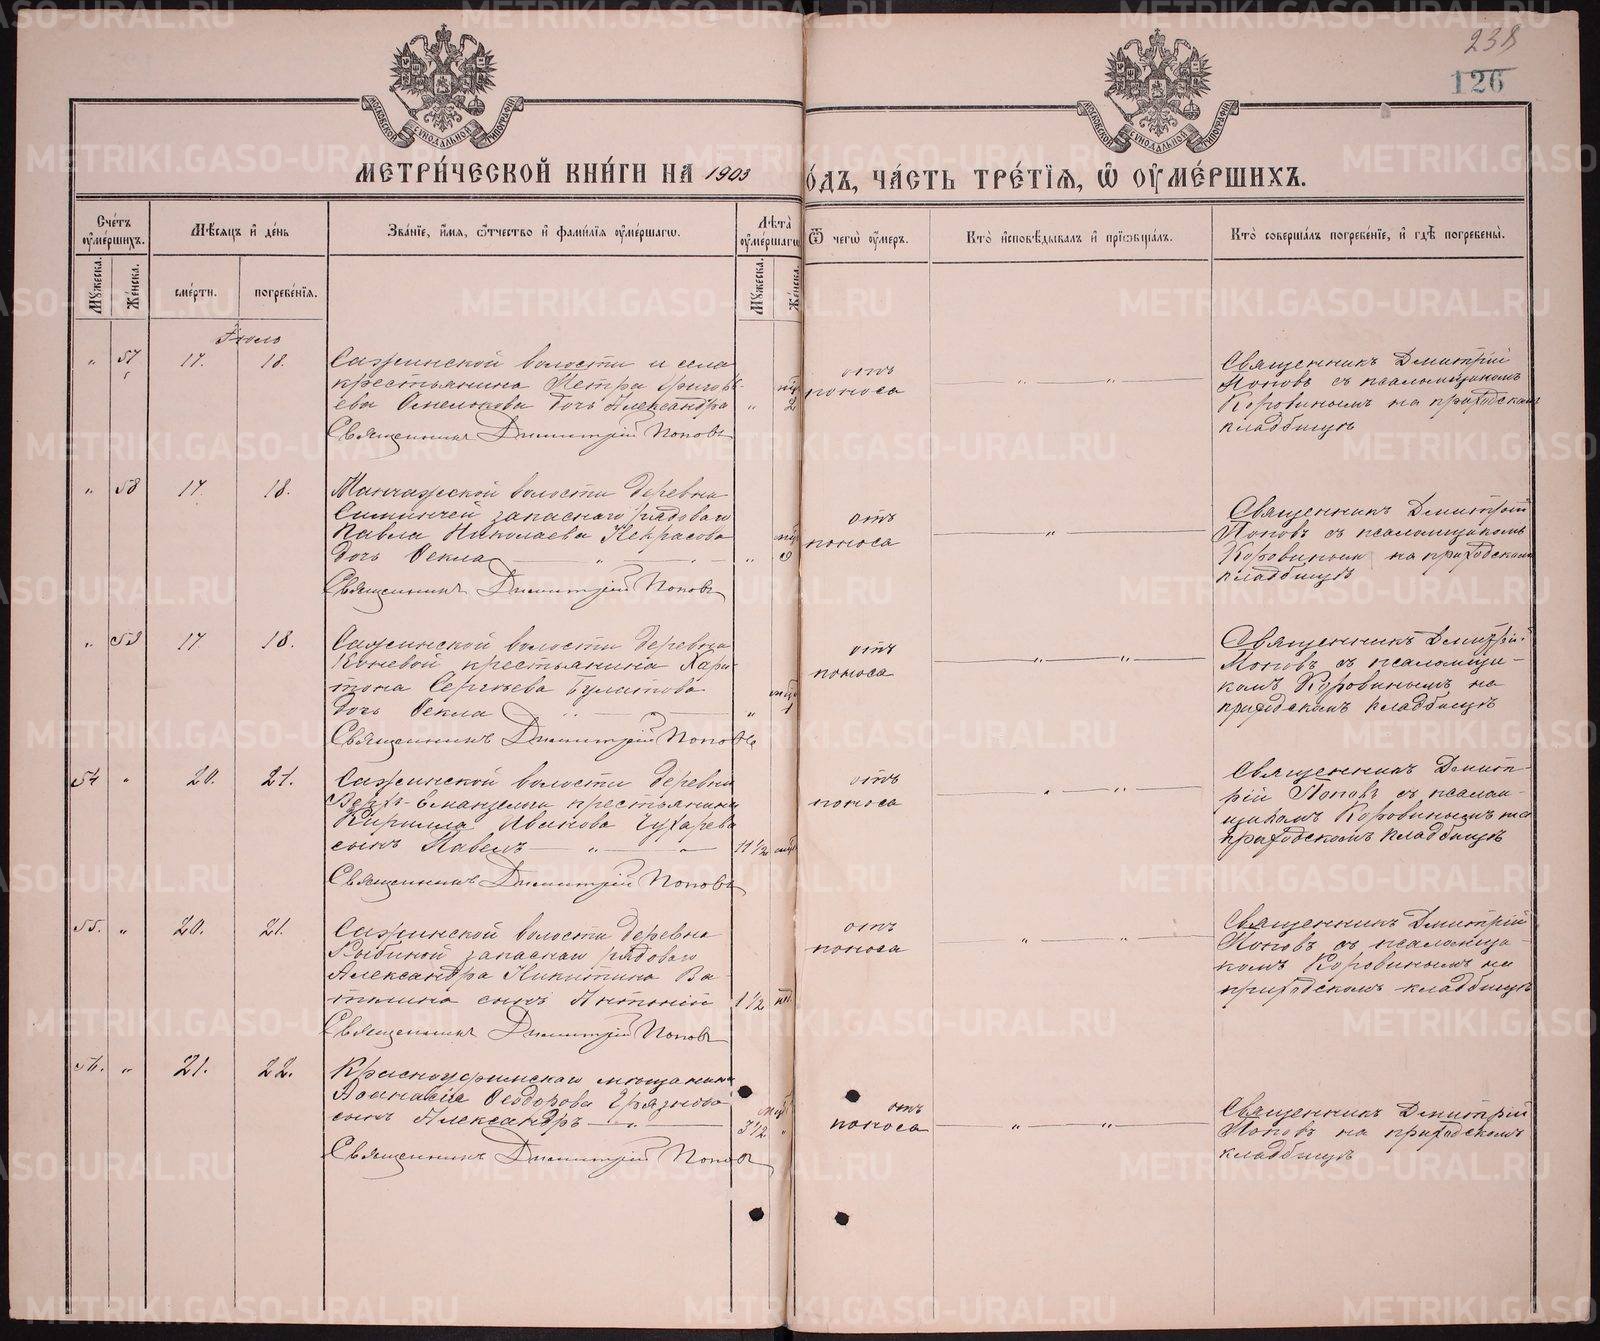 238
126
МОСКОВСКОЙ СѴНОДАЛЬНОЙ ТИПОГРАФІИ
МОСКОВСКОЙ СѴНОДАЛЬНОЙ ТИПОГРАФІИ
МЕТРИ́ЧЕСКОЙ КНИ́ГИ НА 1903
ОДЪ, ЧА́СТЬ ТРЕ́ТІѦ, Ѡ҆ ОУ҆МЕ́РШИХЪ.
Сче́тъ оу҆ме́ршихъ.
Мѣ́сѧцъ и҆ де́нь
Зва́нїе, и҆́мѧ, ѻ҆́тчество и҆ фами́лїѧ оу҆ме́ршагѡ.
Лѣ́та оу҆ме́ршагѡ
Ѿ чегѡ̀ оу҆́меръ.
Кто̀ и҆сповѣ́дывалъ и҆ прїѡбща́лъ.
Кто̀ соверша́лъ погребе́нїе, и҆ гдѣ̀ погребены̀.
Мꙋ́жеска.
Же́нска.
сме́рти.
погребе́нїѧ.
Мꙋ́жеска.
Же́нска.
Іюль
" 57 17. 18. Сажинской волости и села
крестьянина Петра Григорь-
ева Омелькова дочь Александра " 2
Священникъ Димитрій Поповъ
отъ
поноса
" "
Священникъ Дмитрій
Поповъ съ псаломщикомъ
Коровинымъ на приходскомъ
кладбищѣ
" 58 17. 18. Манчажской волости деревни
запаснаго рядового
Павла Николаева Некрасова
дочь Ѳекла " "
Священникъ Димитрій Поповъ
отъ
поноса
"
Священникъ Дмитрій
Поповъ съ псаломщикомъ
Коровинымъ на приходскомъ
кладбищѣ
" 59 17 18. Сажинской волости деревни
Коневой крестьянина Хари-
тона Сергѣева Булатова
дочь Ѳекла "
Священникъ Димитрій Поповъ
отъ
поноса
" "
Священникъ Дмитрій
Поповъ съ псаломщи-
комъ Коровинымъ на
приходскомъ кладбищѣ
54 " 20. 21. Сажинской волости деревни
крестьянина
Кирилла Иванова Чухарева
сынъ Павелъ " "
Священникъ Димитрій Поповъ
отъ
поноса
" "
Священникъ Дмит-
рій Поповъ съ псалом-
щикомъ Коровинымъ на
приходскомъ кладбищѣ
55. " 20. 21. Сажинской волости деревни
Рыбиной запаснаго рядового
Александра Никитина Ва-
сынъ Антоній 1 1/2
Священникъ Димитрій Поповъ
отъ
поноса
" "
Священникъ Дмитрій
Поповъ съ псаломщи-
комъ Коровинымъ на
приходскомъ кладбищѣ
56. " 21. 22. Красноуфимскаго мѣщанина
Аѳанасія Ѳеодорова Грязнова
сынъ Александръ " 3 1/2 "
Священникъ Димитрій Поповъ
отъ
поноса
" "
Священникъ Дмитрій
Поповъ на приходскомъ
кладбищѣ